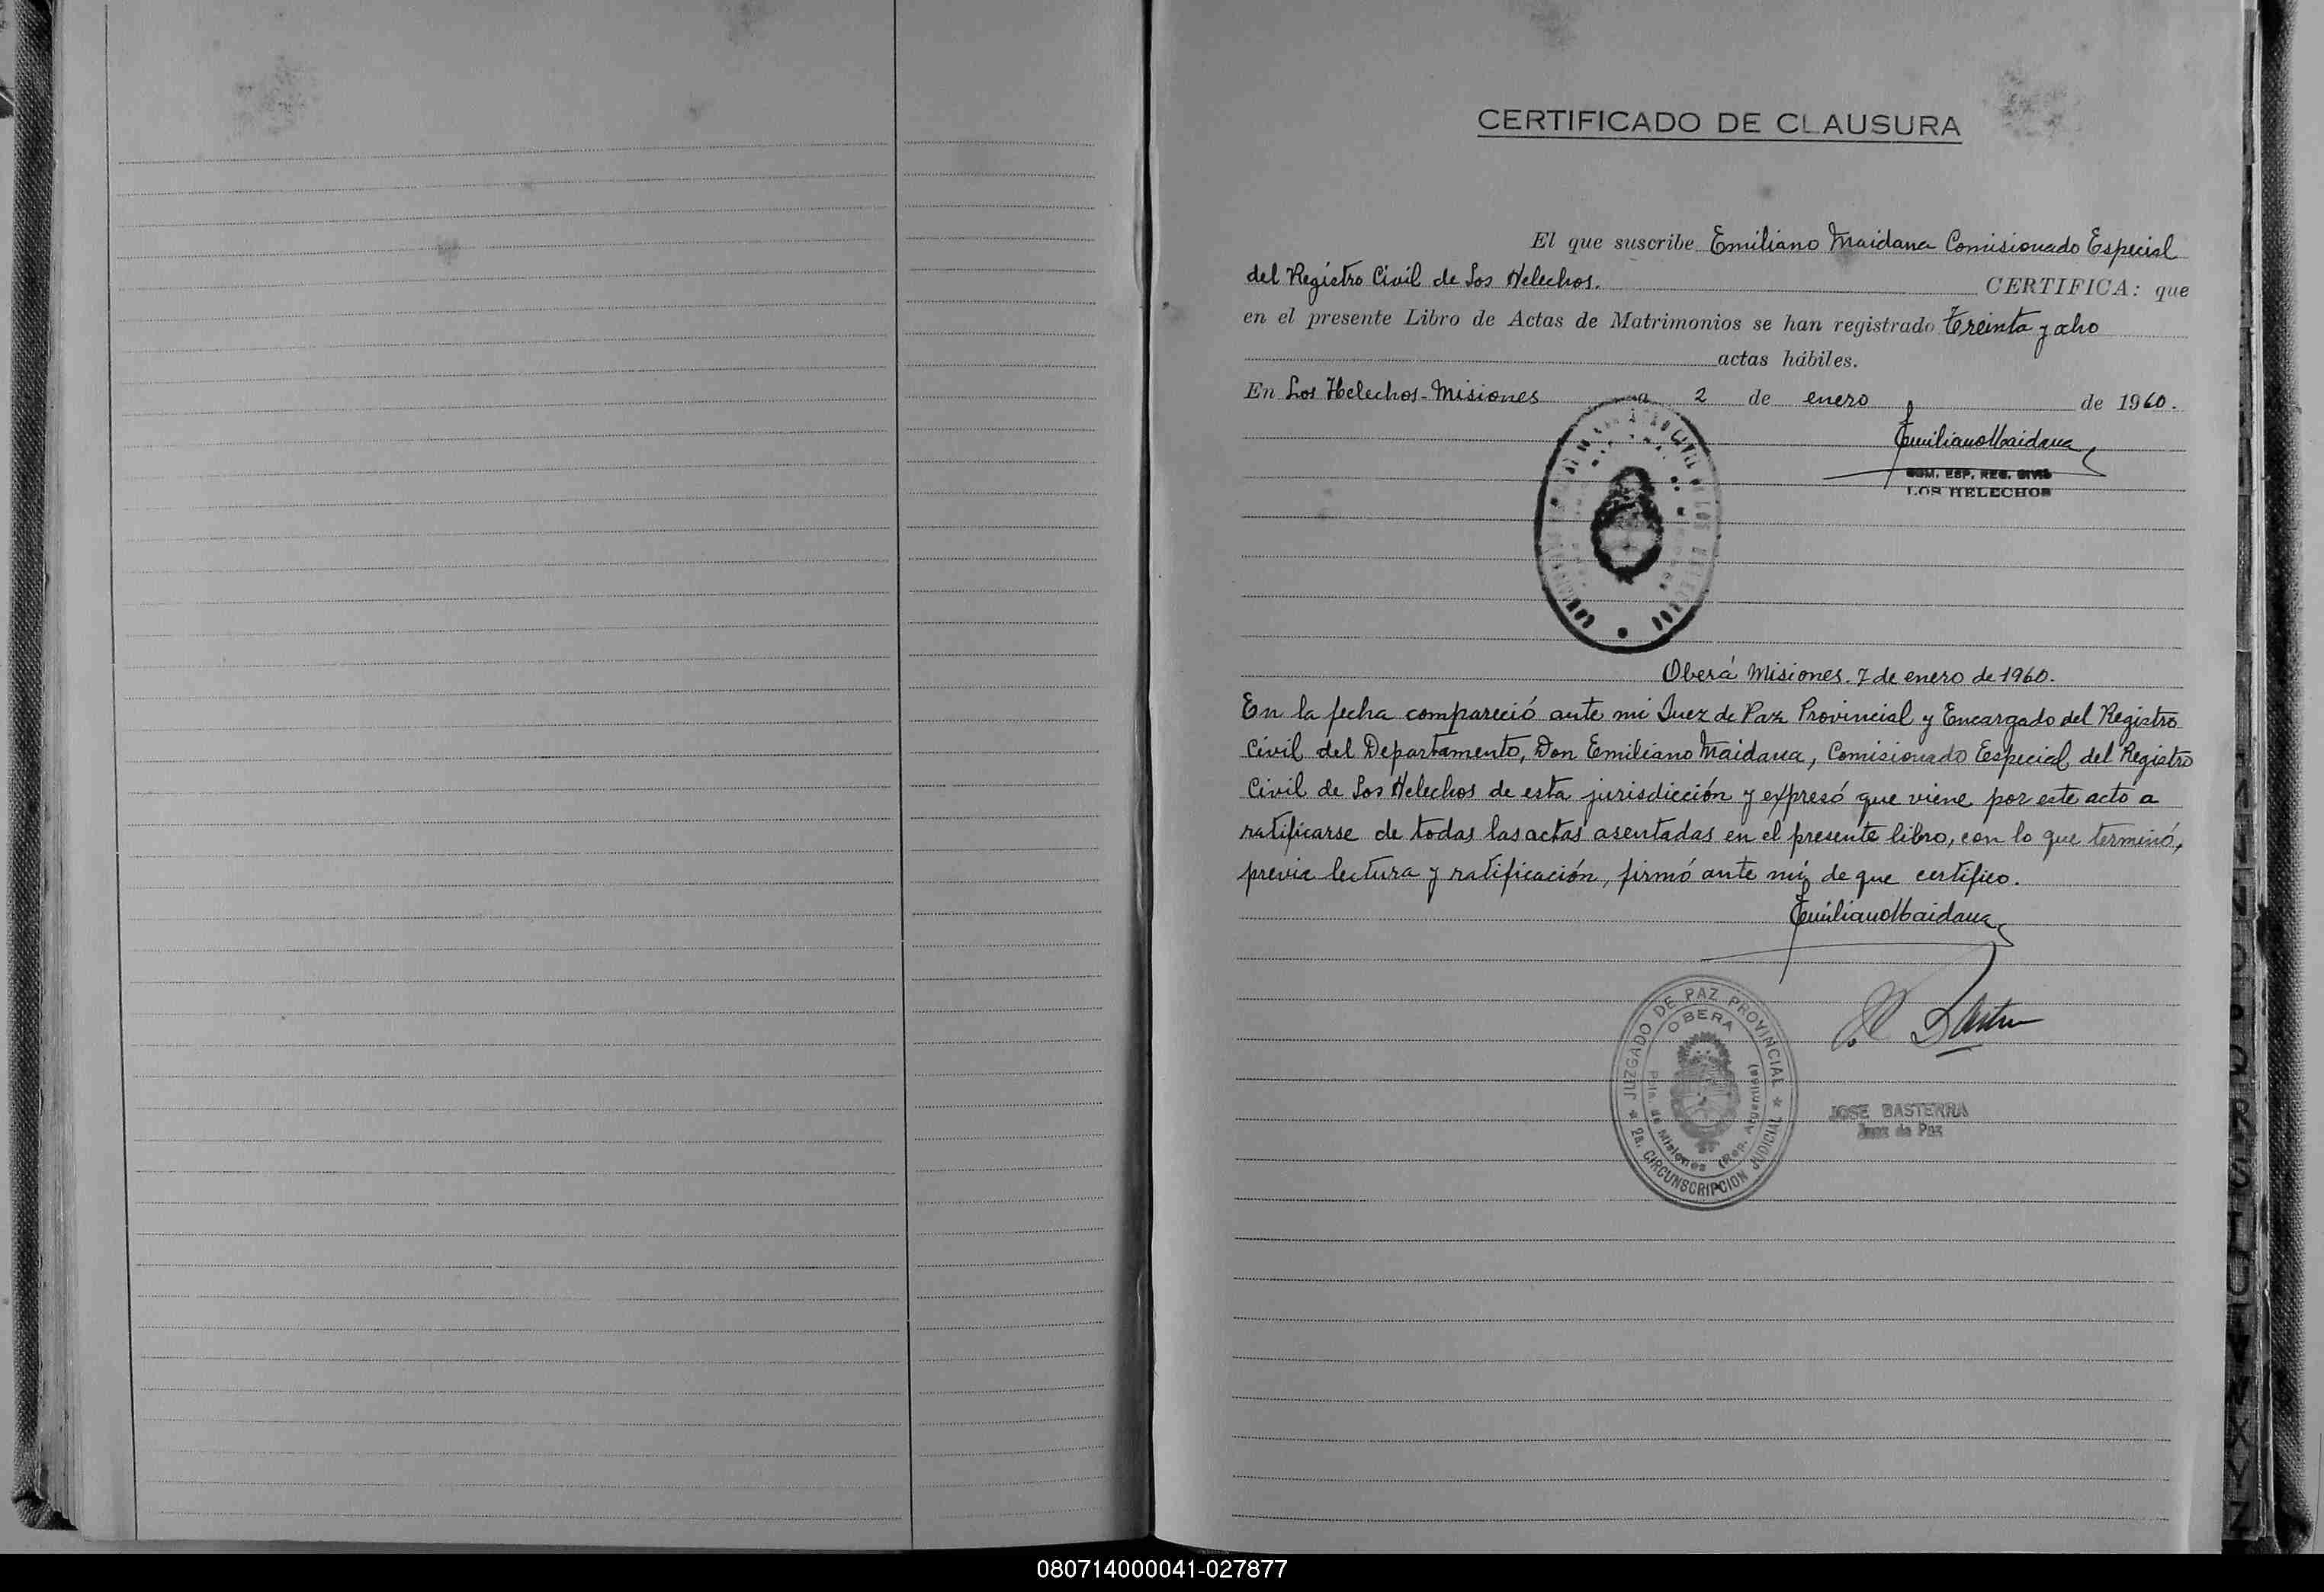 CERTIFICADO DE CLAUSURA
El que suscribe Emiliano Maidana Comisionado Especial
del Registro Civil de Los Helechos. CERTIFICA: que
en el presente Libro de Actas de Matrimonios se han registrado treinta y ocho
actas hábiles.
En Los Helechos - Misiones a 2 de enero de 1960.
Emiliano Maidana
COM. ESP. REG. CIVIL
LOS HELECHOS
Oberá Misiones. 7 de enero de 1960.
En la fecha compareció ante mi Juez de Paz Provincial y Encargado del Registro
Civil del Departamento, Don Emiliano Maidana, Comisionado Especial del Registro
Civil de Los Helechos de esta jurisdicción y expresó que viene por este acto a
ratificarse de todas las actas asentadas en el presente libro, con lo que terminó,
previa lectura y ratificación, firmó ante mi, de que certifico.
Emiliano Maidana
JUZGADO DE PAZ PROVINCIAL
OBERA
Pcia. de Misiones (Rep. Argentina)
2a. CIRCUNSCRIPCION JUDICIAL
JOSE BASTERRA
Juez de Paz
080714000041-027877